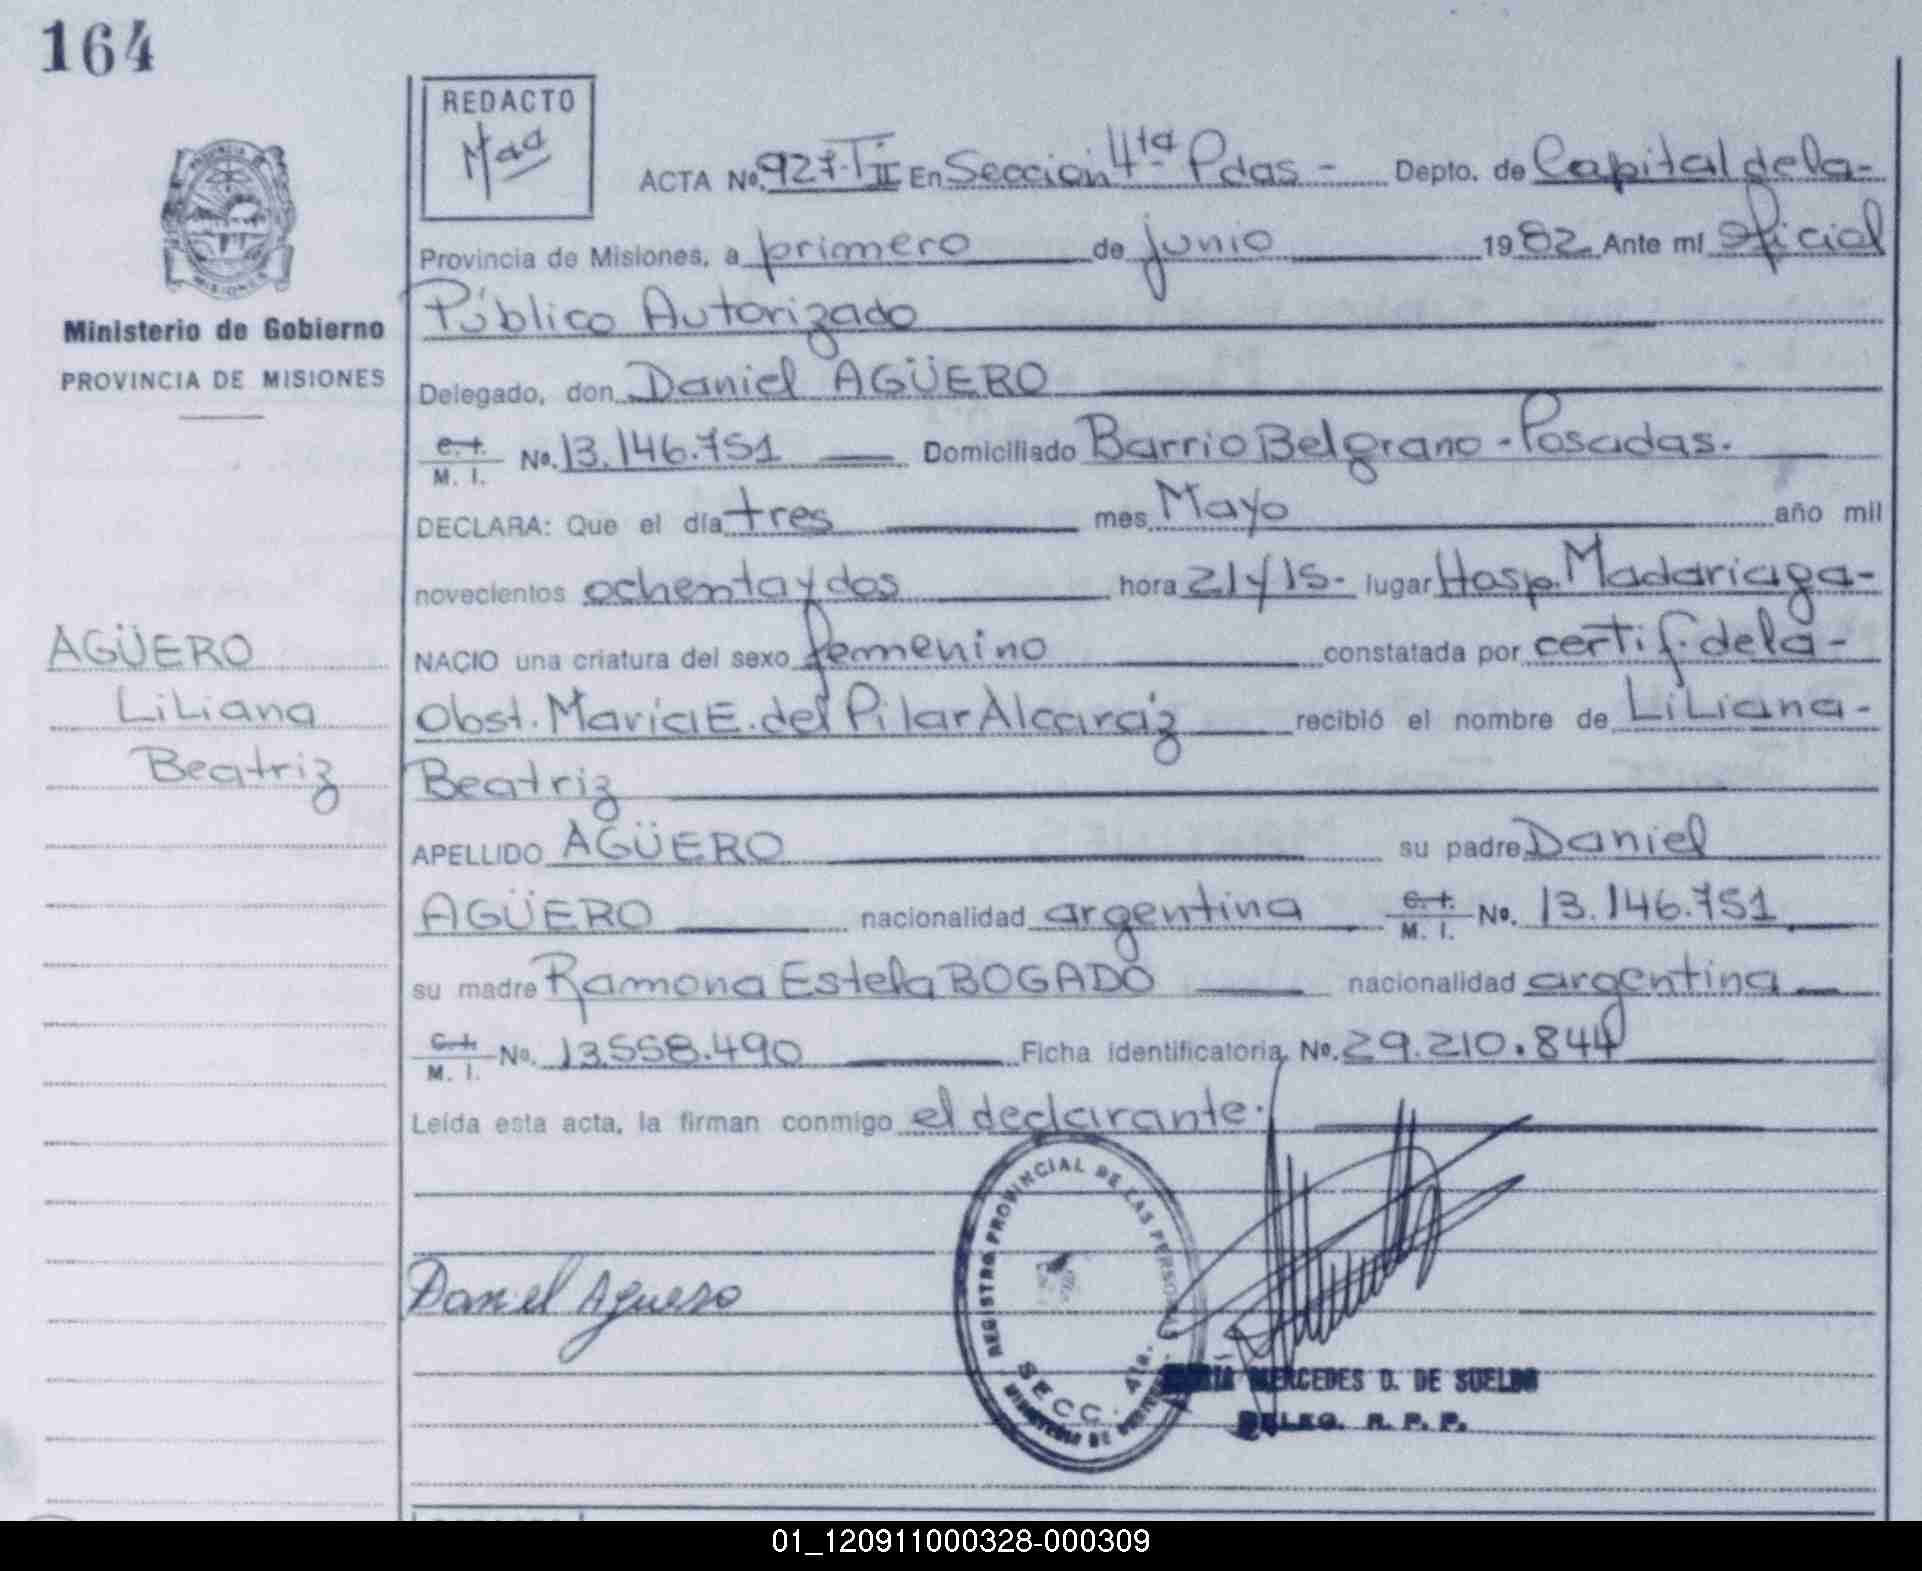 164
REDACTO
PROVINCIA DE MISIONES
Ministerio de Gobierno
PROVINCIA DE MISIONES
ACTA No. 927-T II En Sección 4ta Pdas - Depto. de Capital de la-
Provincia de Misiones, a primero de junio 1982 Ante mí Oficial
Público Autorizado
Delegado, don Daniel AGÜERO
C. I. M. I. No. 13.146.751 Domiciliado Barrio Belgrano - Posadas.
DECLARA: Que el día tres mes Mayo año mil
novecientos ochenta y dos hora 21 y 15- lugar Hosp. Madariaga-
AGÜERO
Liliana
Beatriz
NACIO una criatura del sexo femenino constatada por certif. de la-
Obst. María E. del Pilar Alcaráz recibió el nombre de Liliana-
Beatriz
APELLIDO AGÜERO su padre Daniel
AGÜERO nacionalidad argentina C. I. M. I. No. 13.146.751
su madre Ramona Estela BOGADO nacionalidad argentina
C. I. M. I. No. 13.558.490 Ficha identificatoria No. 29.210.844
Leída esta acta, la firman conmigo el declarante.
REGISTRO PROVINCIAL DE LAS PERSONAS
SECC. 4ta.
MINISTERIO DE GOBIERNO
Daniel Aguero
MARÍA MERCEDES D. DE SUELDO
DELEG. R. P. P.
01_120911000328-000309